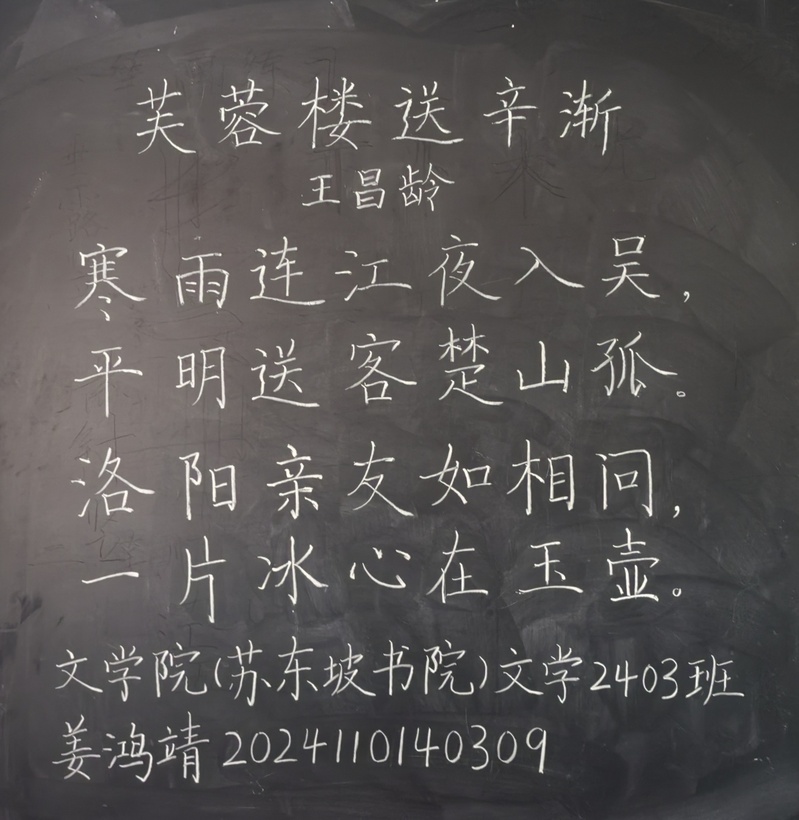 芙蓉楼送辛渐
王昌龄
寒雨连江夜入吴，
平明送客楚山孤。
洛阳亲友如相问，
一片冰心在玉壶。
文学院(苏东坡书院)文学2403班
姜鸿靖 2024110140309